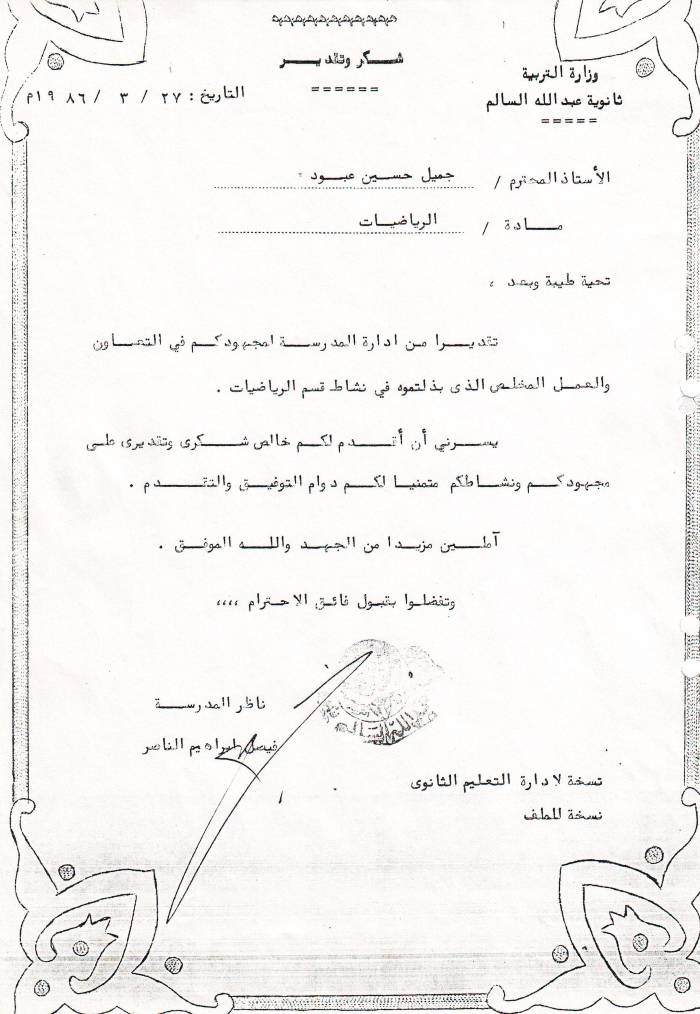 شكر وتقدير
======
وزارة التربية
ثانوية عبدالله السالم
=====
التاريخ : ٢٧ / ٣ / ١٩٨٦م
الأستاذ المحترم / جميل حسين عبود
مادة / الرياضيات
تحية طيبة وبعد ،
تقديرا من ادارة المدرسة لمجهودكم في التعاون
والعمل المخلص الذى بذلتموه في نشاط قسم الرياضيات .
يسرني أن أقدم لكم خالص شكرى وتقديرى على
مجهودكم ونشاطكم متمنيا لكم دوام التوفيق والتقدم .
آملين مزيدا من الجهد والله الموفق .
وتفضلوا بقبول فائق الاحترام ،،،،
ناظر المدرسة
فيصل ابراهيم الناصر
نسخة لادارة التعليم الثانوى
نسخة للملف